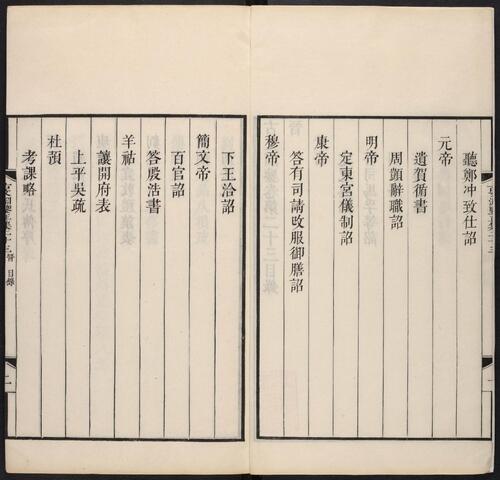 聽鄭冲致仕詔
元帝
遺賀循書
周顗辭職詔
明帝
定東宮儀制詔
康帝
答有司請改服御膳詔
穆帝
下王洽詔
簡文帝
百官詔
答殷浩書
羊祜
讓開府表
上平吳疏
杜預
考課略
目錄
二